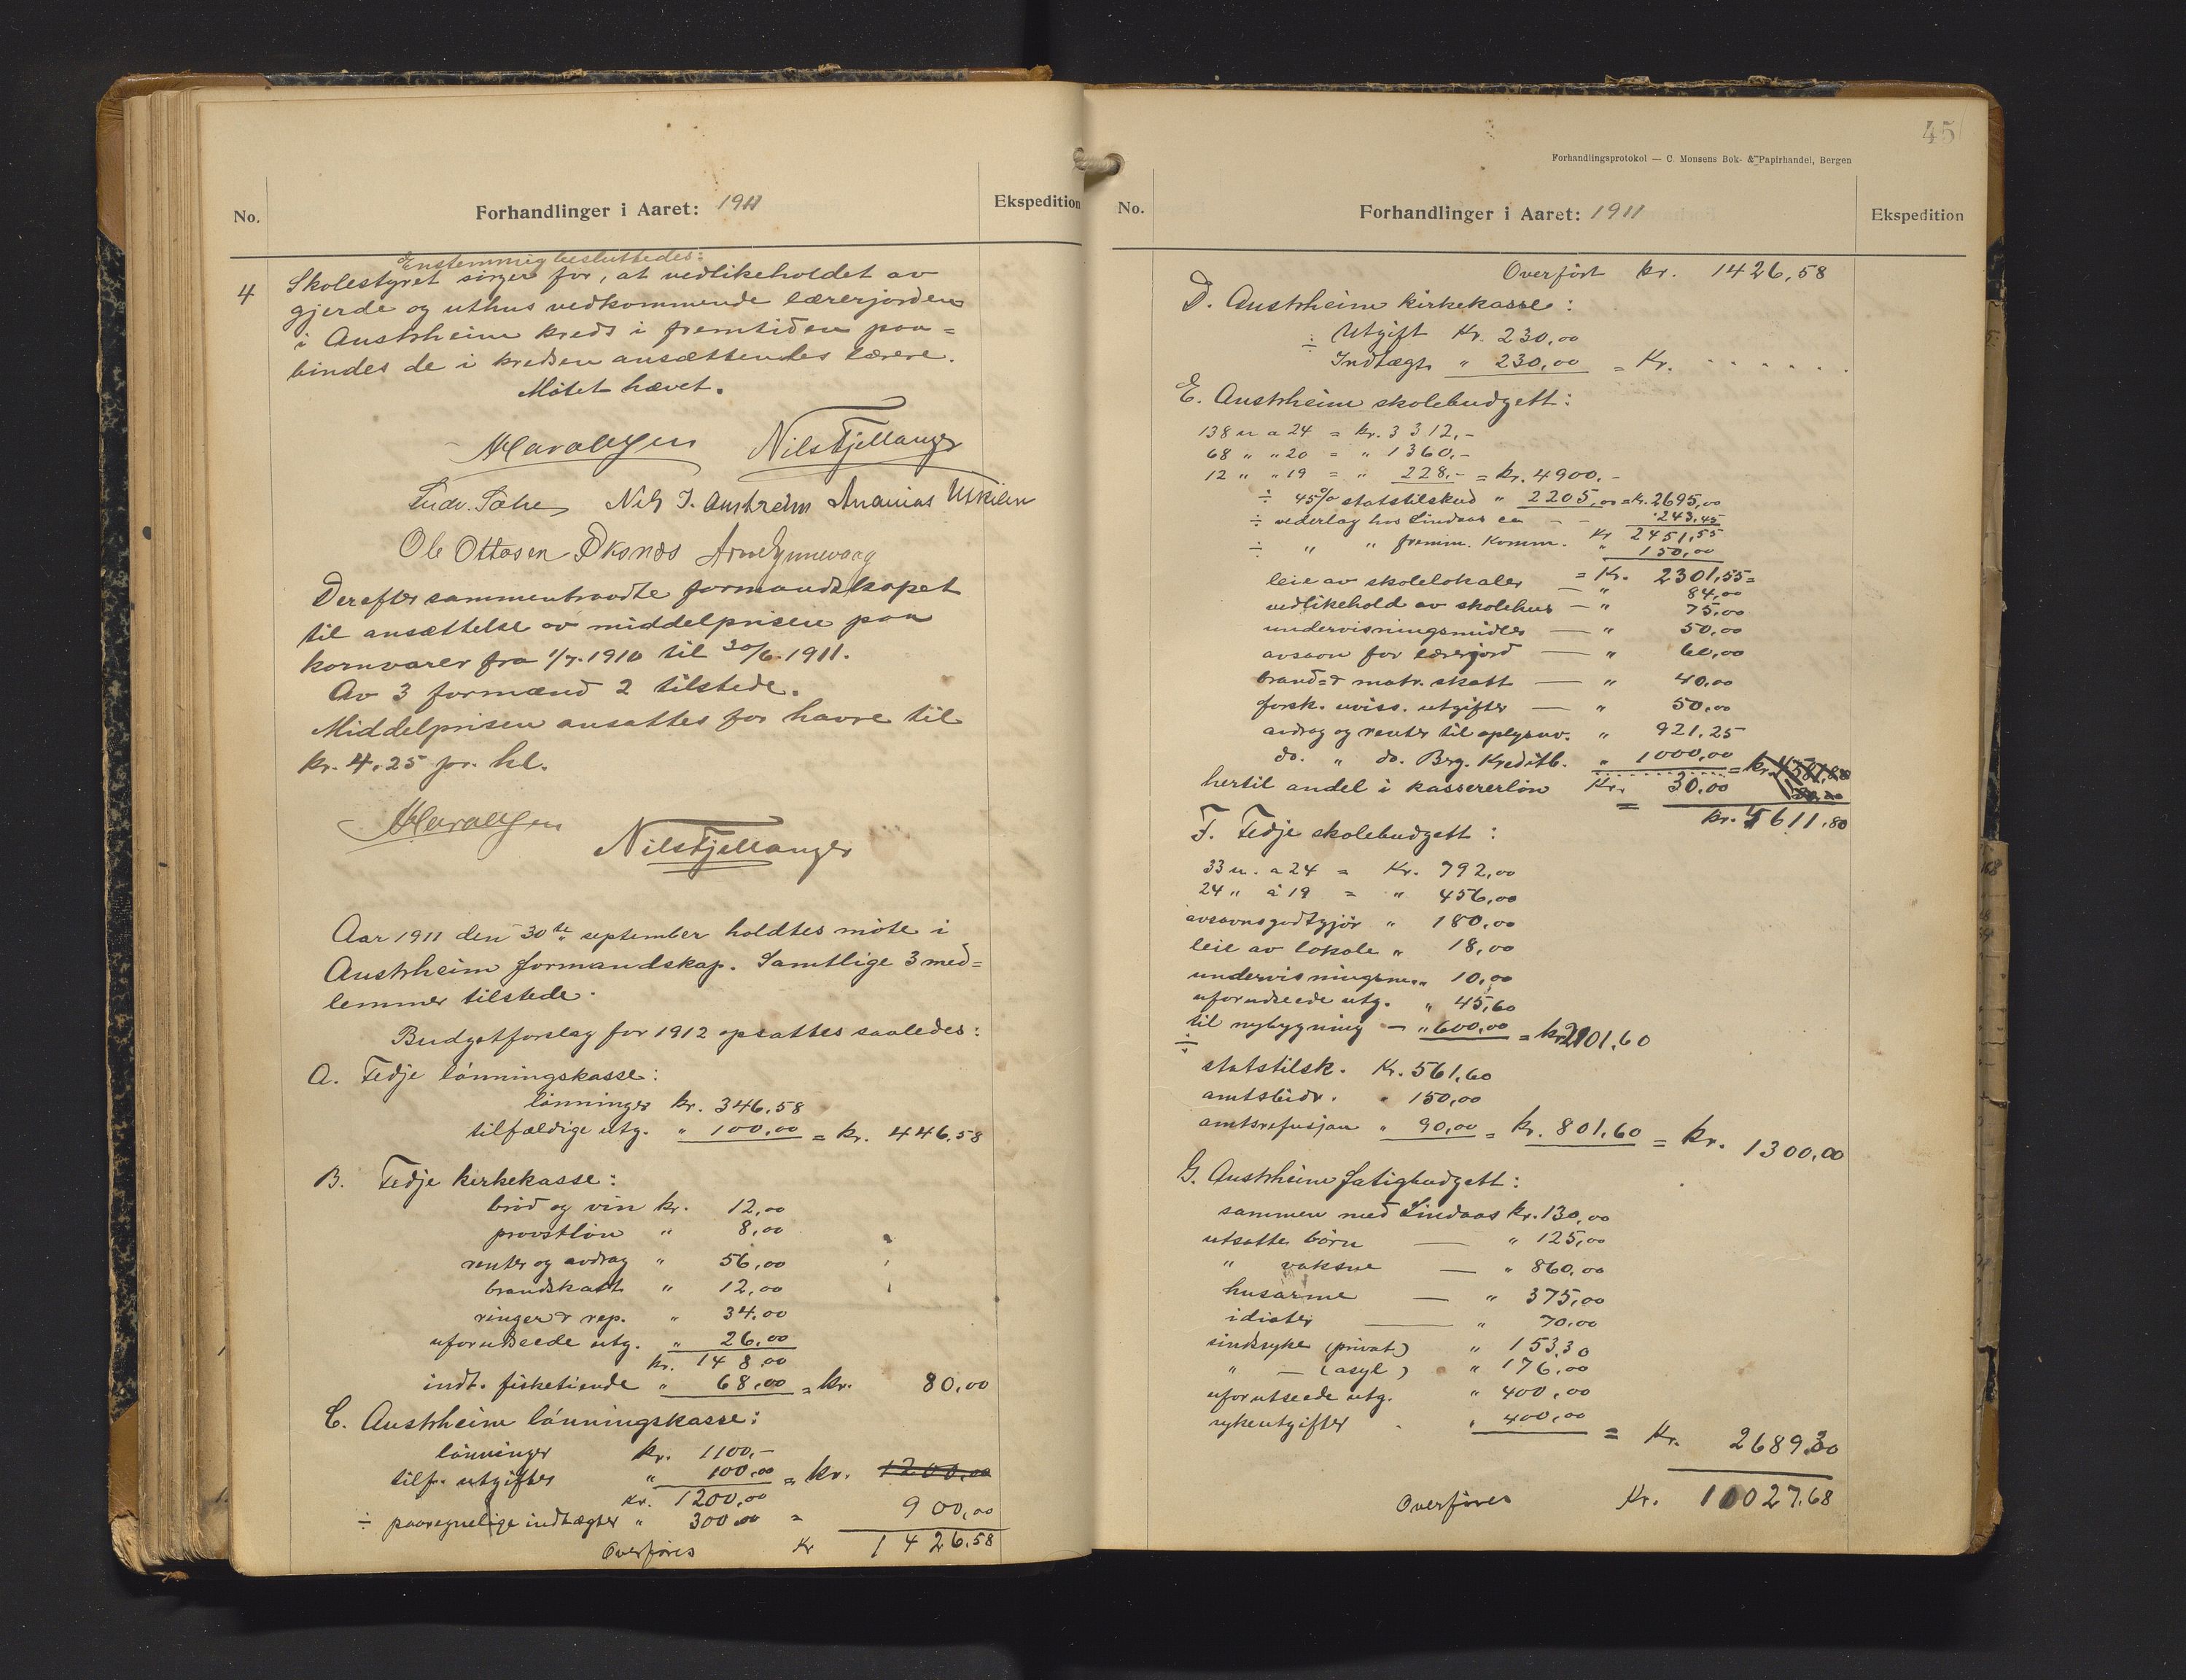 No.
Forhandlinger i Aaret: 1911
Ekspedition
Enstemmig besluttedes:
4 Skolestyret sørger for, at vedlikeholdet av
gjerde og uthus vedkommende lærerjorden
i Austrheim kreds i fremtiden paa=
bindes de i kredsen ansættendes lærere.
Møtet hævet.
Nils Fjellanger
Nils J. Austrehm Ananias Utkilen
Ole Ottosen
Derefter sammentraadte formandskapet
til ansættelse av middelprisen paa
kornvarer fra 1/7. 1910 til 30/6. 1911.
Av 3 formænd 2 tilstede.
Middelprisen ansattes for havre til
kr. 4.25 pr. hl.
Nils Fjellanger
Aar 1911 den 30te september holdtes møte i
Austrheim formandskap. Samtlige 3 med=
lemmer tilstede.
Budgetforslag for 1912 opsattes saaledes:
A. Fedje lønningskasse:
lønninger kr. 346,58
tilfældige utg. " 100,00 = kr. 446,58
B. Fedje kirkekasse:
brød og vin kr. 12,00
provstløn " 8,00
renter og avdrag " 56,00
brandskatt " 12,00
ringer & rep. " 34.00
uforutseede utg. " 26,00
kr. 148,00
indt. fisketiende " 68,00 = kr. 80,00
C. Austrheim lønningskasse:
lønninger kr. 1100,-
tilf. utgifter " 100,00 = kr. 1200,00
kr. 1200,00
÷ paaregnelige indtægter " 300,00 = 900,00
Overføres Kr 1426,58
45
Forhandlingsprotokol — C. Monsens Bok- & Papirhandel, Bergen
No.
Forhandlinger i Aaret: 1911
Ekspedition
Overført kr. 1426,58
D. Austrheim kirkekasse:
Utgift Kr. 230,00
÷ Indtægt " 230,00 = Kr. . . . . . .
E. Austrheim skolebudgett:
138 u a 24 = kr. 3312,-
68 " " 20 = " 1360,-
12 " " 19 = " 228,- = kr. 4900,-
÷ 45% statstilskud " 2205,00 = kr. 2695,00
÷ vederlag hos Lindaas en - - 243,45
Kr 2451,55
÷ " " fremm. Komm. " 150,00
= Kr. 2301,55=
leie av skolelokaler — " 84,00
vedlikehold av skolehus — " 75,00
undervisningsmidler — " 50,00
avsavn for lærerjord — " 60,00
brand= & matr. skatt — " 40,00
forsk. uviss. utgifter — " 50,00
avdrag og renter til oplysnv. " 921,25
do. " do. Brg. Kreditb. " 1000,00 = kr. 4581,80
hertil andel i kassererløn Kr. 30,00
= kr. 4611,80
F. Fedje skolebudgett:
33 u. a 24 = Kr. 792,00
24 " á 19 = " 456,00
avsavnsgodtgjør " 180,00
leie av lokale " 18,00
undervisningsm. " 10,00
uforudseede utg. " 45,60
til nybygning — " 600,00 = kr 2101,60
÷
statstilsk. Kr. 561,60
amtsbidr. " 150,00
amtsrefusjon " 90,00 = kr. 801,60 = kr. 1300,00
G. Austrheim fatigbudgett:
sammen med Lindaas kr. 130,00
utsatte børn — " 125,00
" voksne — " 860,00
husarme — " 375,00
idioter — " 70,00
sindsyke (privat) " 153,30
" — (asyl) " 176,00
uforutseede utg. " 400,00
sykeutgifter " 400,00
= Kr. 2689.30
Overføres Kr. 10027,68